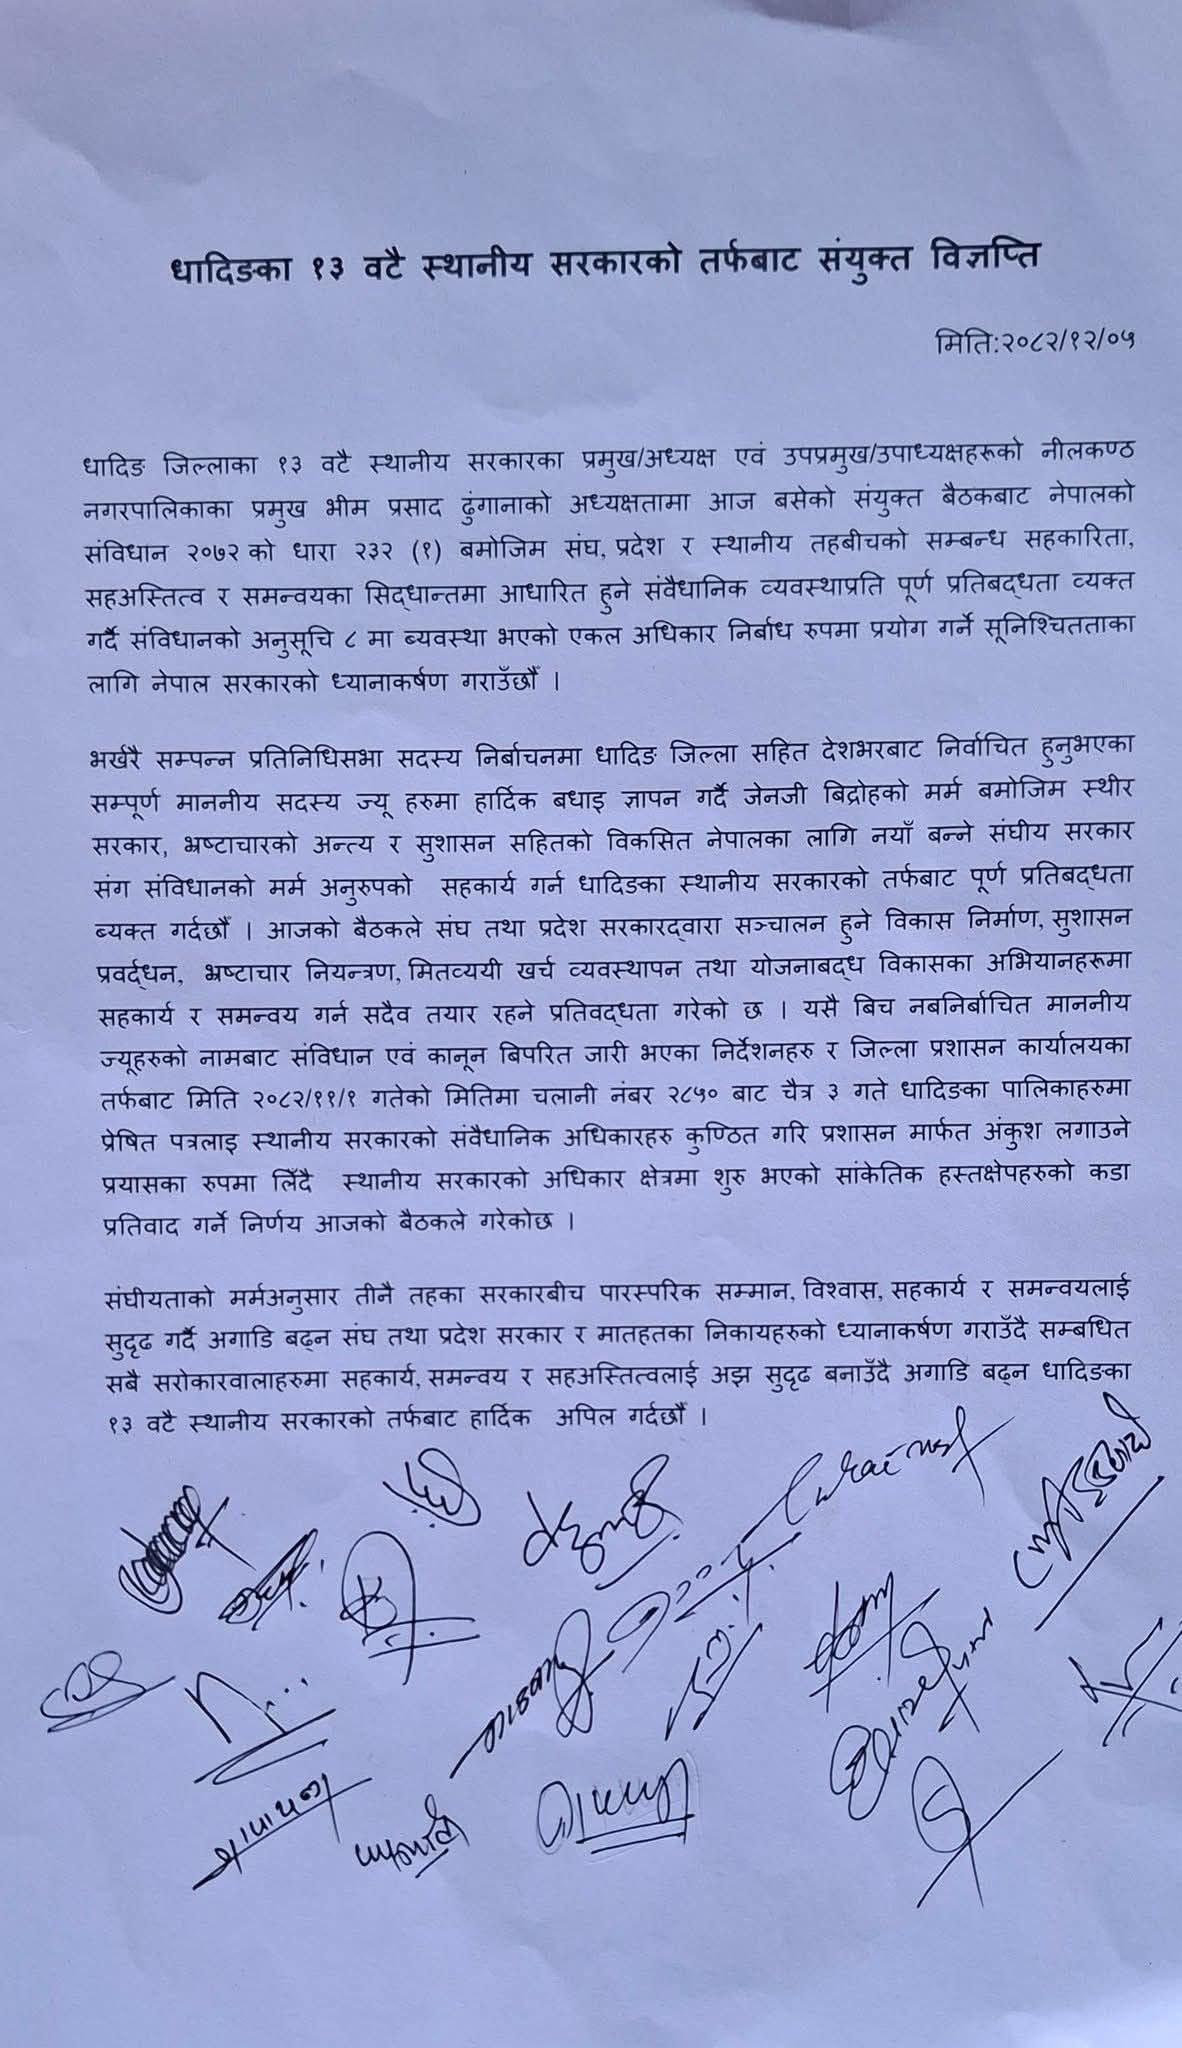 धादिङका १३ वटै स्थानीय सरकारको तर्फबाट संयुक्त विज्ञप्ति
मिति:२०८२/१२/०५
धादिङ जिल्लाका १३ वटै स्थानीय सरकारका प्रमुख/अध्यक्ष एवं उपप्रमुख/उपाध्यक्षहरूको नीलकण्ठ
नगरपालिकाका प्रमुख भीम प्रसाद ढुंगानाको अध्यक्षतामा आज बसेको संयुक्त बैठकबाट नेपालको
संविधान २०७२ को धारा २३२ (१) बमोजिम संघ, प्रदेश र स्थानीय तहबीचको सम्बन्ध सहकारिता,
सहअस्तित्व र समन्वयका सिद्धान्तमा आधारित हुने संवैधानिक व्यवस्थाप्रति पूर्ण प्रतिबद्धता व्यक्त
गर्दै संविधानको अनुसूचि ८ मा ब्यवस्था भएको एकल अधिकार निर्बाध रुपमा प्रयोग गर्ने सूनिश्चितताका
लागि नेपाल सरकारको ध्यानाकर्षण गराउँछौँ ।
भर्खरै सम्पन्न प्रतिनिधिसभा सदस्य निर्बाचनमा धादिङ जिल्ला सहित देशभरबाट निर्वाचित हुनुभएका
सम्पूर्ण माननीय सदस्य ज्यू हरुमा हार्दिक बधाइ ज्ञापन गर्दै जेनजी बिद्रोहको मर्म बमोजिम स्थीर
सरकार, भ्रष्टाचारको अन्त्य र सुशासन सहितको विकसित नेपालका लागि नयाँ बन्ने संघीय सरकार
संग संविधानको मर्म अनुरुपको सहकार्य गर्न धादिङका स्थानीय सरकारको तर्फबाट पूर्ण प्रतिबद्धता
ब्यक्त गर्दछौँ । आजको बैठकले संघ तथा प्रदेश सरकारद्वारा सञ्चालन हुने विकास निर्माण, सुशासन
प्रवर्द्धन, भ्रष्टाचार नियन्त्रण, मितव्ययी खर्च व्यवस्थापन तथा योजनाबद्ध विकासका अभियानहरूमा
सहकार्य र समन्वय गर्न सदैव तयार रहने प्रतिवद्धता गरेको छ । यसै बिच नबनिर्बाचित माननीय
ज्यूहरुको नामबाट संविधान एवं कानून बिपरित जारी भएका निर्देशनहरु र जिल्ला प्रशासन कार्यालयका
तर्फबाट मिति २०८२/११/१ गतेको मितिमा चलानी नंबर २८५० बाट चैत्र ३ गते धादिङका पालिकाहरुमा
प्रेषित पत्रलाइ स्थानीय सरकारको संवैधानिक अधिकारहरु कुण्ठित गरि प्रशासन मार्फत अंकुश लगाउने
प्रयासका रुपमा लिँदै स्थानीय सरकारको अधिकार क्षेत्रमा शुरु भएको सांकेतिक हस्तक्षेपहरुको कडा
प्रतिवाद गर्ने निर्णय आजको बैठकले गरेकोछ ।
संघीयताको मर्मअनुसार तीनै तहका सरकारबीच पारस्परिक सम्मान, विश्वास, सहकार्य र समन्वयलाई
सुदृढ गर्दै अगाडि बढ्न संघ तथा प्रदेश सरकार र मातहतका निकायहरुको ध्यानाकर्षण गराउँदै सम्बधित
सबै सरोकारवालाहरुमा सहकार्य, समन्वय र सहअस्तित्वलाई अझ सुदृढ बनाउँदै अगाडि बढ्न धादिङका
१३ वटै स्थानीय सरकारको तर्फबाट हार्दिक अपिल गर्दछौँ ।